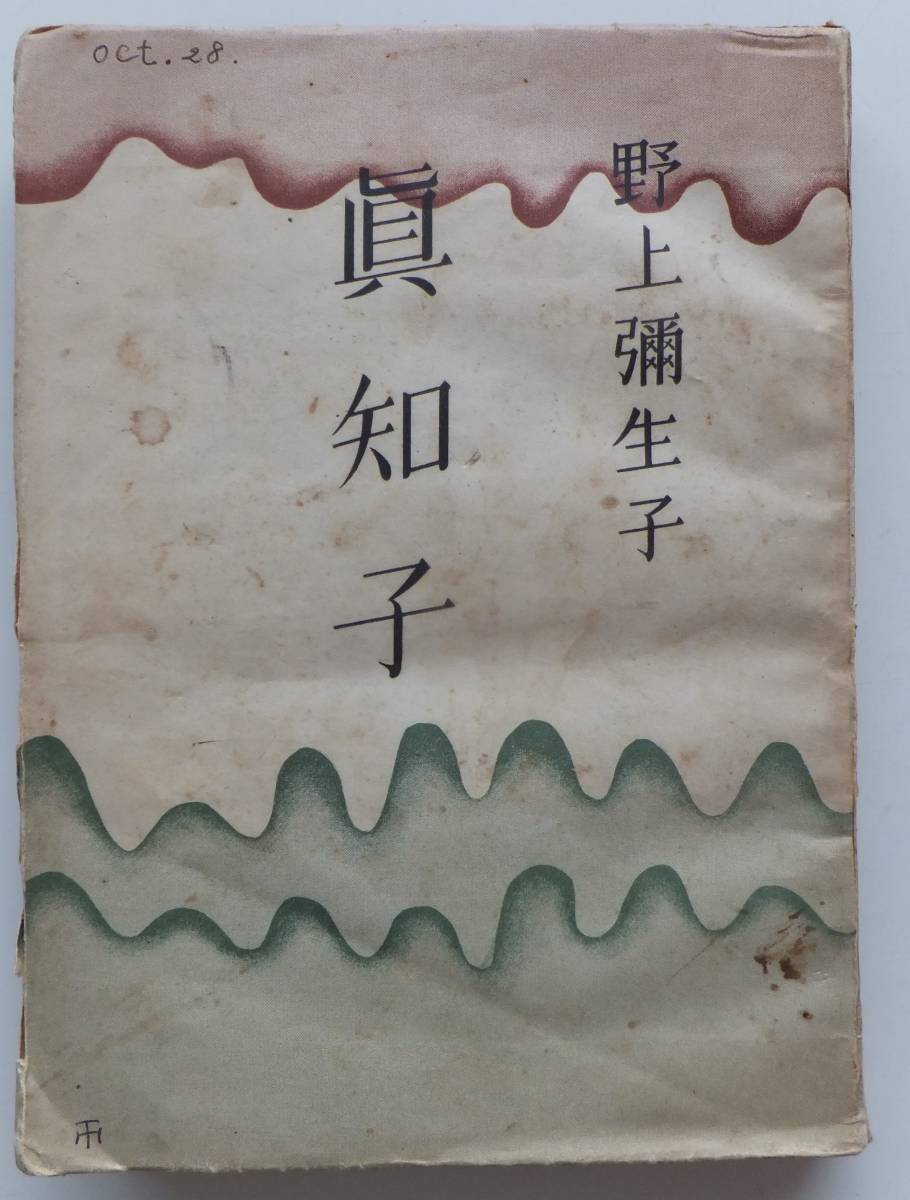 oct. 28.
野上彌生子
眞知子